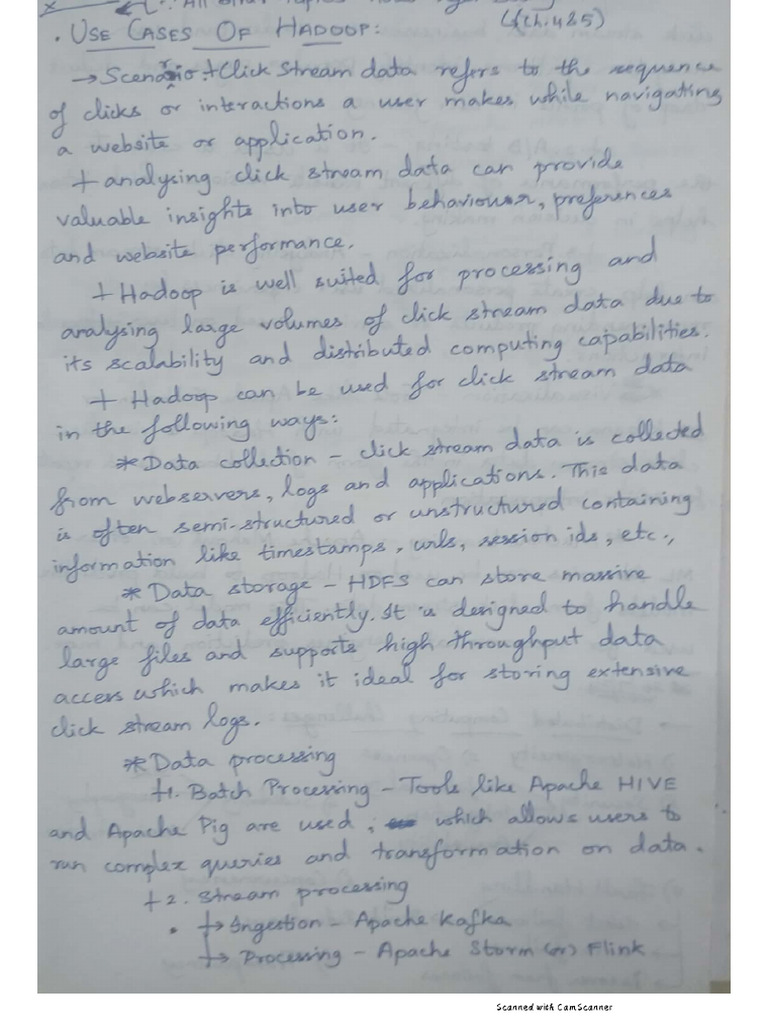 All other topics
. USE CASES OF HADOOP: (Ch:4&5)
→ Scenario:+Click Stream data refers to the sequence
of clicks or interactions a user makes while navigating
a website or application.
+ analysing click stream data can provide
valuable insights into user behaviour, preferences
and website performance.
+ Hadoop is well suited for processing and
analysing large volumes of click stream data due to
its scalability and distributed computing capabilities.
+ Hadoop can be used for click stream data
in the following ways:
* Data collection - click stream data is collected
from webservers, logs and applications. This data
is often semi-structured or unstructured containing
information like timestamps, urls, session ids, etc.,
* Data storage - HDFS can store massive
amount of data efficiently. It is designed to handle
large files and supports high throughput data
access which makes it ideal for storing extensive
click stream logs.
* Data processing
+1. Batch Processing - Tools like Apache HIVE
and Apache Pig are used, which allows users to
run complex queries and transformation on data.
+2. Stream processing
. → Ingestion - Apache Kafka
→ Processing - Apache Storm (or) Flink
Scanned with CamScanner